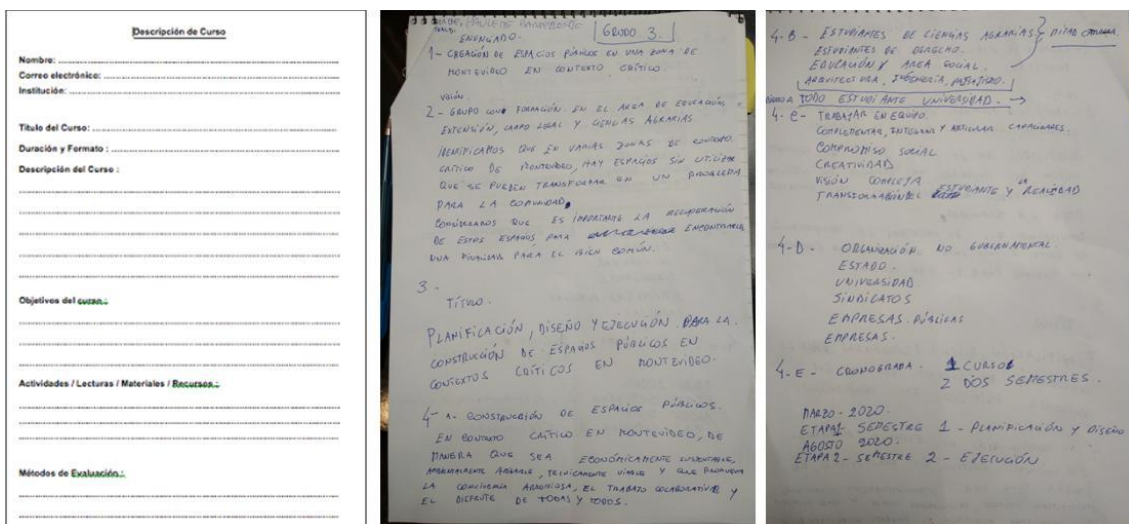 Descripción de Curso
Nombre:
Correo electrónico:
Institución:
Título del Curso:
Duración y Formato :
Descripción del Curso :
Objetivos del curso :
Actividades / Lecturas / Materiales / Recursos :
Métodos de Evaluación :
GRUPO 3.
ENUNCIADO.
1- CREACIÓN DE ESPACIOS PÚBLICOS EN UNA ZONA DE
MONTEVIDEO EN CONTEXTO CRÍTICO.
VISIÓN.
2- GRUPO CON FORMACIÓN EN EL AREA DE EDUCACIÓN,
EXTENSIÓN, CAMPO LEGAL Y CIENCIAS AGRARIAS
IDENTIFICAMOS QUE EN VARIAS ZONAS DE CONTEXTO
CRÍTICO DE MONTEVIDEO, HAY ESPACIOS SIN UTILIZAR
QUE SE PUEDEN TRANSFORMAR EN UN PROBLEMA
PARA LA COMUNIDAD.
CONSIDERAMOS QUE ES IMPORTANTE LA RECUPERACIÓN
DE ESTOS ESPACIOS PARA ENCONTRARLE
UNA FINALIDAD PARA EL BIEN COMÚN.
3 -
TÍTULO.
PLANIFICACIÓN, DISEÑO Y EJECUCIÓN PARA LA
CONSTRUCCIÓN DE ESPACIOS PÚBLICOS EN
CONTEXTOS CRÍTICOS EN MONTEVIDEO.
4- A- CONSTRUCCIÓN DE ESPACIOS PÚBLICOS.
EN CONTEXTO CRÍTICO EN MONTEVIDEO, DE
MANERA QUE SEA ECONÓMICAMENTE SUSTENTABLE,
AMBIENTALMENTE AMIGABLE, TÉCNICAMENTE VIABLE Y QUE PROMUEVA
LA CONVIVENCIA ARMONIOSA, EL TRABAJO COLABORATIVO Y
EL DISFRUTE DE TODAS Y TODOS.
4-B - ESTUDIANTES DE CIENCIAS AGRARIAS
ESTUDIANTES DE DERECHO.
EDUCACIÓN Y AREA SOCIAL.
ARQUITECTURA, INGENIERÍA,
TODO ESTUDIANTE UNIVERSIDAD. →
4- C- TRABAJAR EN EQUIPO.
COMPLEMENTAR, INTEGRAR Y ARTICULAR CAPACIDADES.
COMPROMISO SOCIAL
CREATIVIDAD
VISIÓN COMPLEJA
TRANSFORMACIÓN DEL ESTUDIANTE Y LA REALIDAD
4-D - ORGANIZACIÓN NO GUBERNAMENTAL.
ESTADO.
UNIVERSIDAD
SINDICATOS
EMPRESAS PÚBLICAS
EMPRESAS.
4-E - CRONOGRAMA. 1 CURSO
2 DOS SEMESTRES.
MARZO - 2020.
ETAPA 1- SEMESTRE 1 - PLANIFICACIÓN Y DISEÑO
AGOSTO 2020.
ETAPA 2- SEMESTRE 2 - EJECUCIÓN